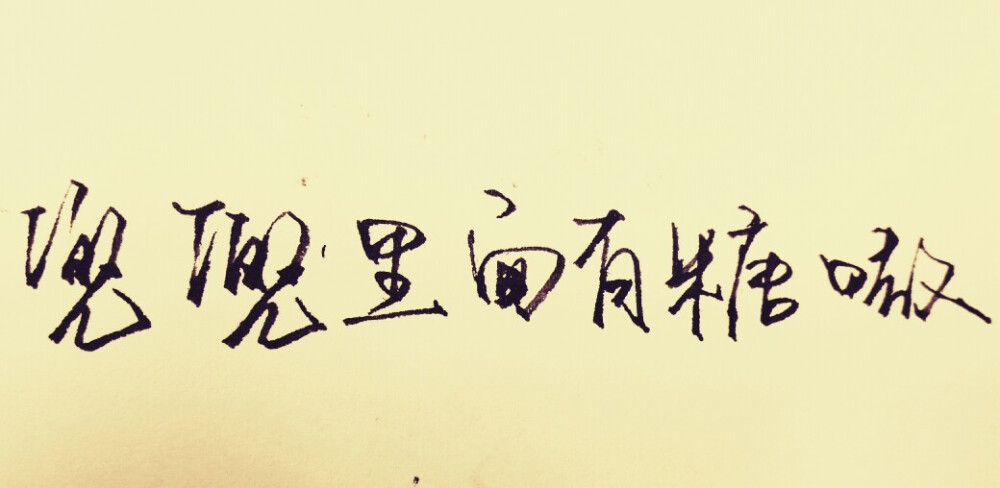 兜兜里面有糖嗷